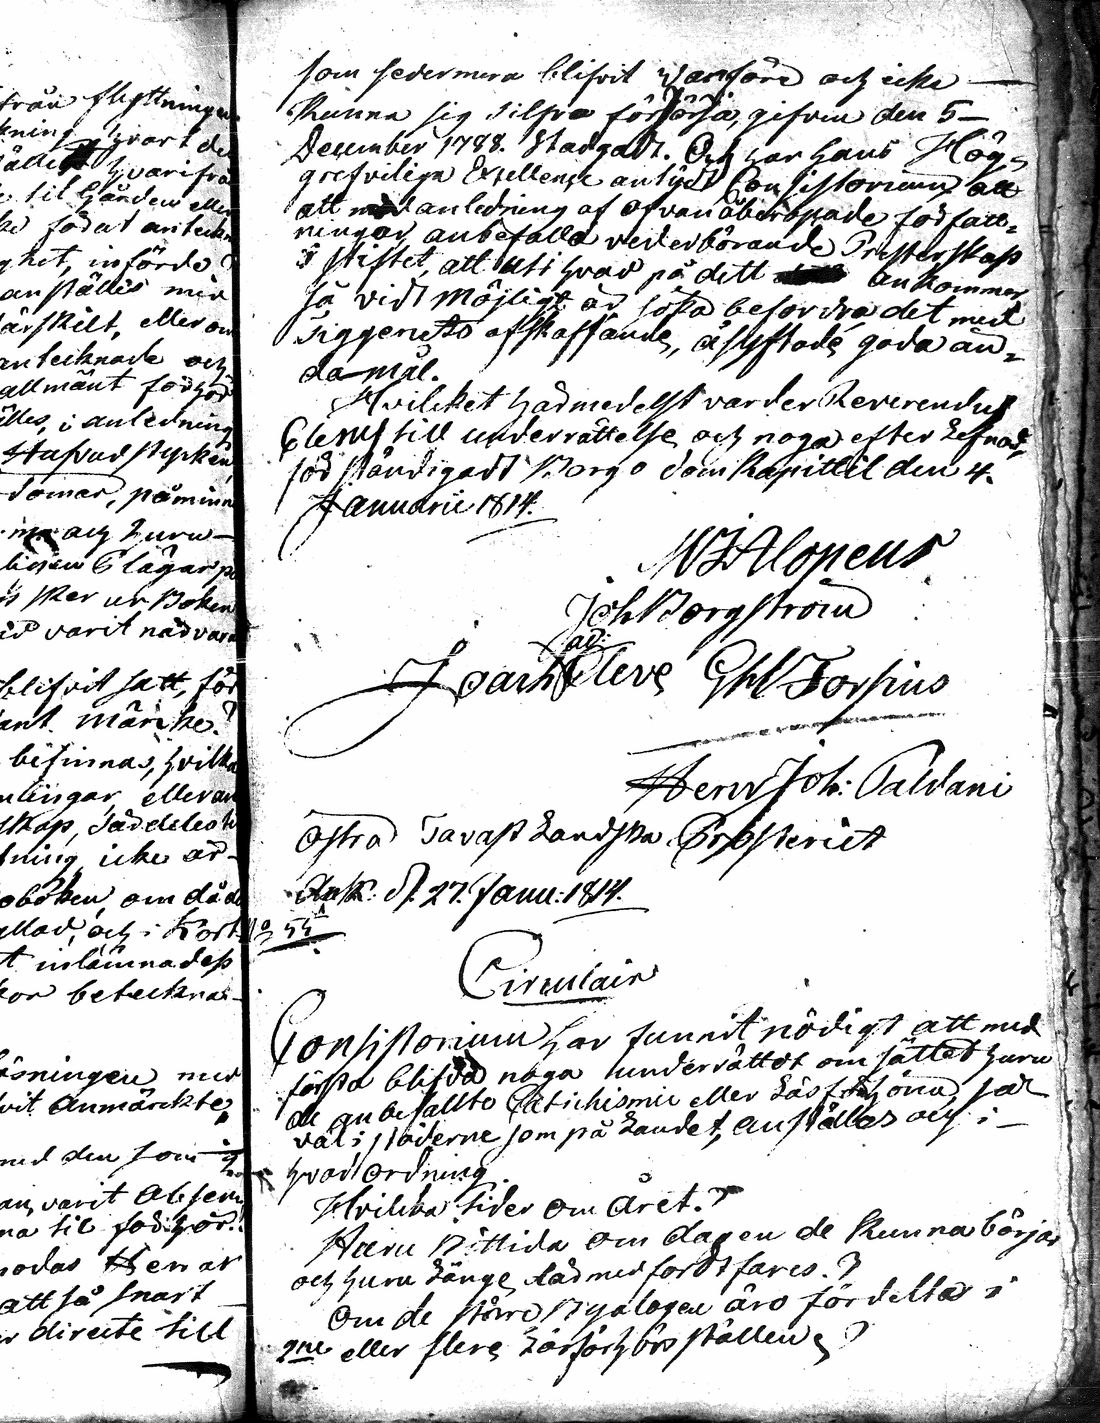 från flyttningen
kning hvart de
hvarifrå
til Gården eller
ke födat anteckn
ghet, införde?
anställes med
särskilt, eller om
antecknade och
allmänt förhör
älles, i anledning
Hufvudstycken
domar, påminn
och huru
Plägar på
sker ur Boken
id varit nödvarn
blifvit satt, för
ant märcke?
befinnas, hvilka
mlingar eller an
skap, såddelest
tning icke ar-
oboken, om död
och i Kort
t inlämnadess
kor beteckna-
läsningen med
vit anmärckte,
med den som ig
an, varit Absen
na til förhör.
modas Herrar
att så snart
r directe till
som sedermera blifvit vanföre och icke
kunna sig sielfva försörja, gifven den 5-
December 1788. Stadgadt. Och har Hans Hög-
grefveliga Excellence antydt Consistorium, att
att med anledning af ofvanåberopade författ-
ningar, anbefalla vederbörande Presterskap
i stiftet, att uti hvad på dett ankommer
så vidt möjligt är söka befordra det med
Tiggeriets afskaffande, åsyftade goda än-
damål.
Hvilcket härmedelst varder Reverendus
Clerus till underrättelse och noga efterlefnad,
förständigadt Borgo Dom Kapittel den 4.
Januarii 1814.
M J Alopeus
Joh Borgström
ad:
Joach Cleve Ghl Forsius
Henr Joh: Paldani
Östra Tavast Landska Prosteriet
Ank: d. 27. Janu: 1814.
No 55
Circulair
Consistorium har funnit nödigt att med
första blifva noga underrättat om sättet huru
de anbefallte Catichismi eller Läsförhören, så
väl i städerne som på Landet, anställas och i
hvad ordning.
Hvilcka tider om Året?
Huru Bittida om dagen de kunna börjas
och huru länge därmed fortfares?
Om de större Byalagen äro fördelta i
2ne eller flere Läsförhörs ställen?